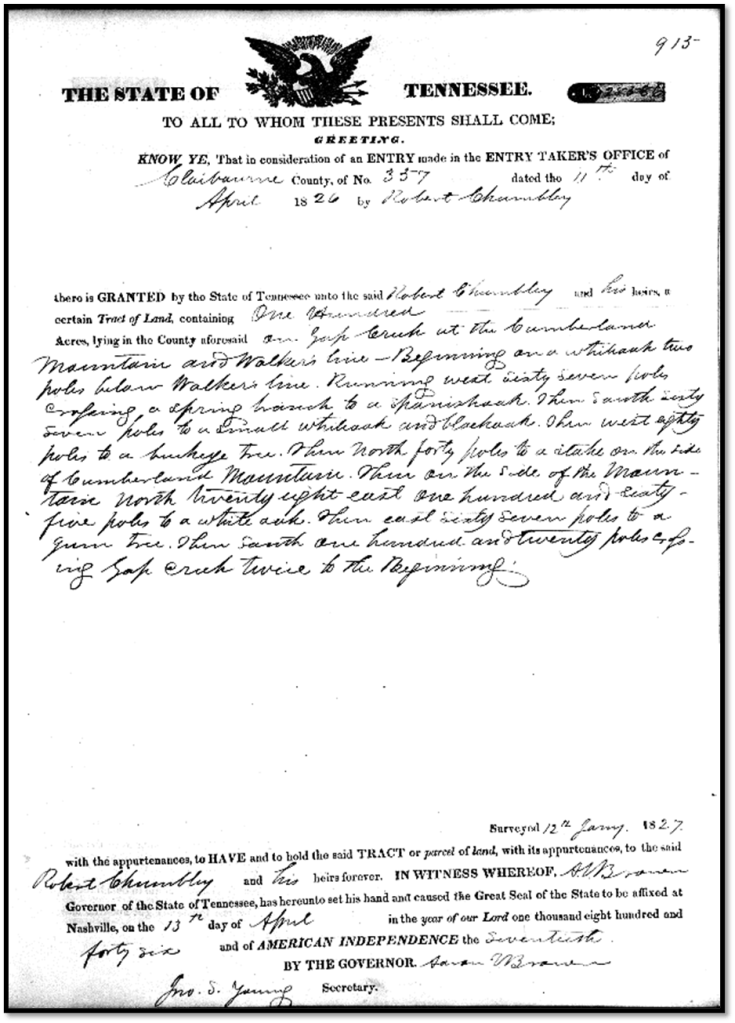 913
THE STATE OF TENNESSEE.
TO ALL TO WHOM THESE PRESENTS SHALL COME;
GREETING.
KNOW YE, That in consideration of an ENTRY made in the ENTRY TAKER'S OFFICE of
Claibourne County, of No. 337 dated the 11th day of
April 1826 by Robert Chumbley
there is GRANTED by the State of Tennessee unto the said Robert Chumbley and his heirs, a
certain Tract of Land, containing One Hundred
Acres, lying in the County aforesaid on Gap Creek at the Cumberland
Mountain and Walker's line – Beginning on a whiteoak two
poles below Walker's line. Running west sixty seven poles
crossing a spring branch to a spanishoak. Then South sixty
seven poles to a small whiteoak and blackoak. Then west eighty
poles to a buckeye tree. Then North forty poles to a stake on the side
of Cumberland Mountain. Then on the side of the Moun-
tain North twenty eight east one hundred and sixty-
five poles to a white oak. Then east sixty seven poles to a
gum tree. Then South one hundred and twenty poles cross-
ing Gap Creek twice to the Beginning.
Surveyed 12th Jany. 1827.
with the appurtenances, to HAVE and to hold the said TRACT or parcel of land, with its appurtenances, to the said
Robert Chumbley and his heirs forever. IN WITNESS WHEREOF, A V Brown
Governor of the State of Tennessee, has hereunto set his hand and caused the Great Seal of the State to be affixed at
Nashville, on the 13th day of April in the year of our Lord one thousand eight hundred and
forty six and of AMERICAN INDEPENDENCE the Seventieth.
BY THE GOVERNOR. Aaron V Brown
Jno. S. Young Secretary.